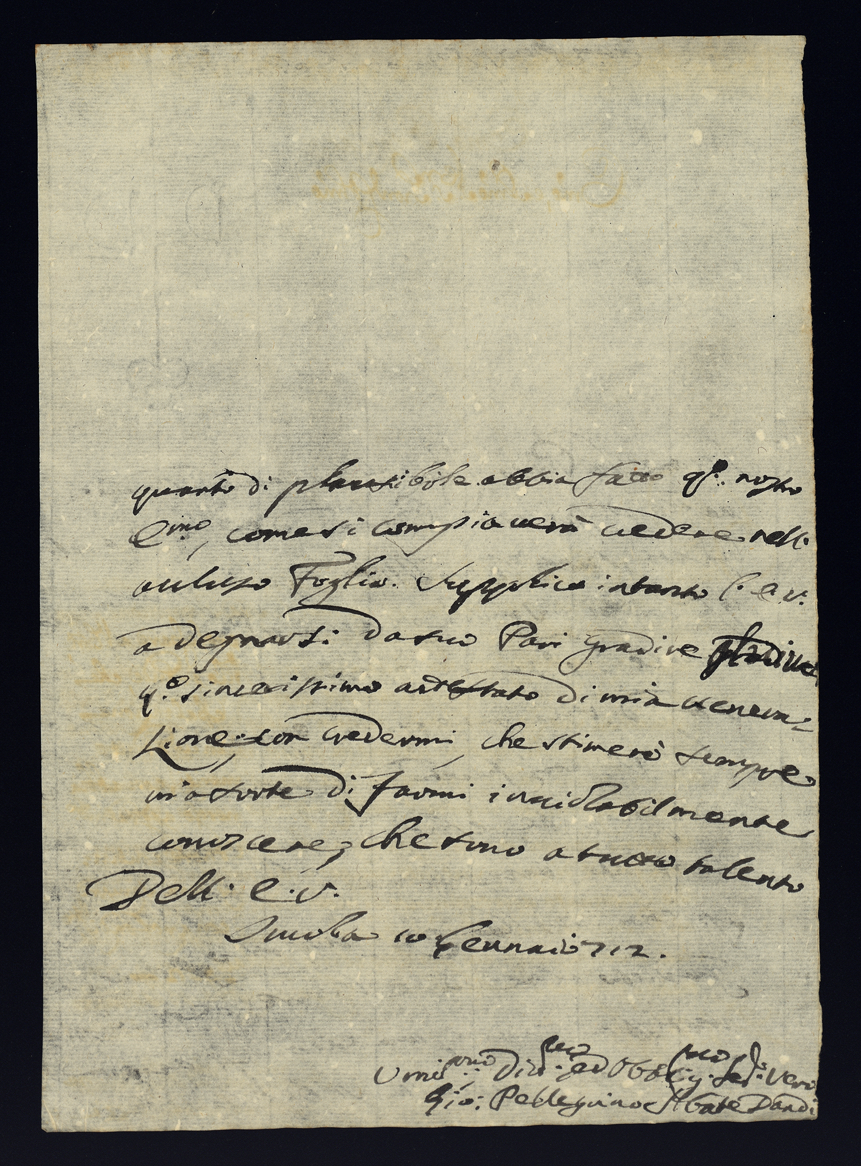 quanto di plausibile abbia fatto q.o nostro
E.mo, come si compiacerà vedere nell'
acluso Foglio. Supplico intanto l'E.V.
a degnarsi da suo Pari gradire
q.o sincerissimo attestato di mia venera=
zione, con credermi, che stimerò sempre
mia sorte di farmi inviolabilmente
conoscere, che sono a tutto talento
Dell' E.V.
Imola 10 Gennaio 712.
Umil.mo Div.mo ed Obb.mo Ser. Vero
Gio: Pellegrino Abate Dandi